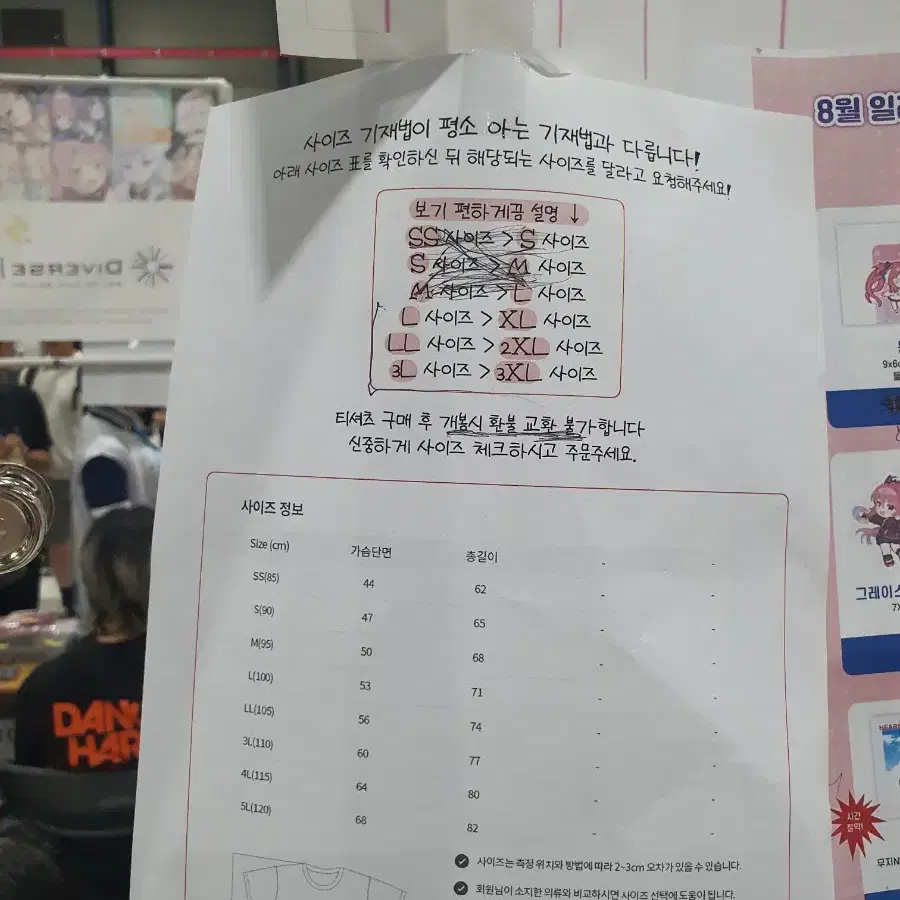 사이즈 기재법이 평소 아는 기재법과 다릅니다!
아래 사이즈 표를 확인하신 뒤 해당되는 사이즈를 달라고 요청해주세요!
보기 편하게끔 설명 ↓
SS 사이즈 > S 사이즈
S 사이즈 > M 사이즈
M 사이즈 > L 사이즈
L 사이즈 > XL 사이즈
LL 사이즈 > 2XL 사이즈
3L 사이즈 > 3XL 사이즈
티셔츠 구매 후 개봉시 환불 교환 불가합니다
신중하게 사이즈 체크하시고 주문주세요.
사이즈 정보
Size (cm) 가슴단면 총길이 - -
SS(85) 44 62 - -
S(90) 47 65 - -
M(95) 50 68 - -
L(100) 53 71 - -
LL(105) 56 74 - -
3L(110) 60 77 - -
4L(115) 64 80 - -
5L(120) 68 82 - -
사이즈는 측정 위치와 방법에 따라 2~3cm 오차가 있을 수 있습니다.
회원님이 소지한 의류와 비교하시면 사이즈 선택에 도움이 됩니다.
8월
그레이스
시간
절약!
무지
DIVERSE
DANC
HAR